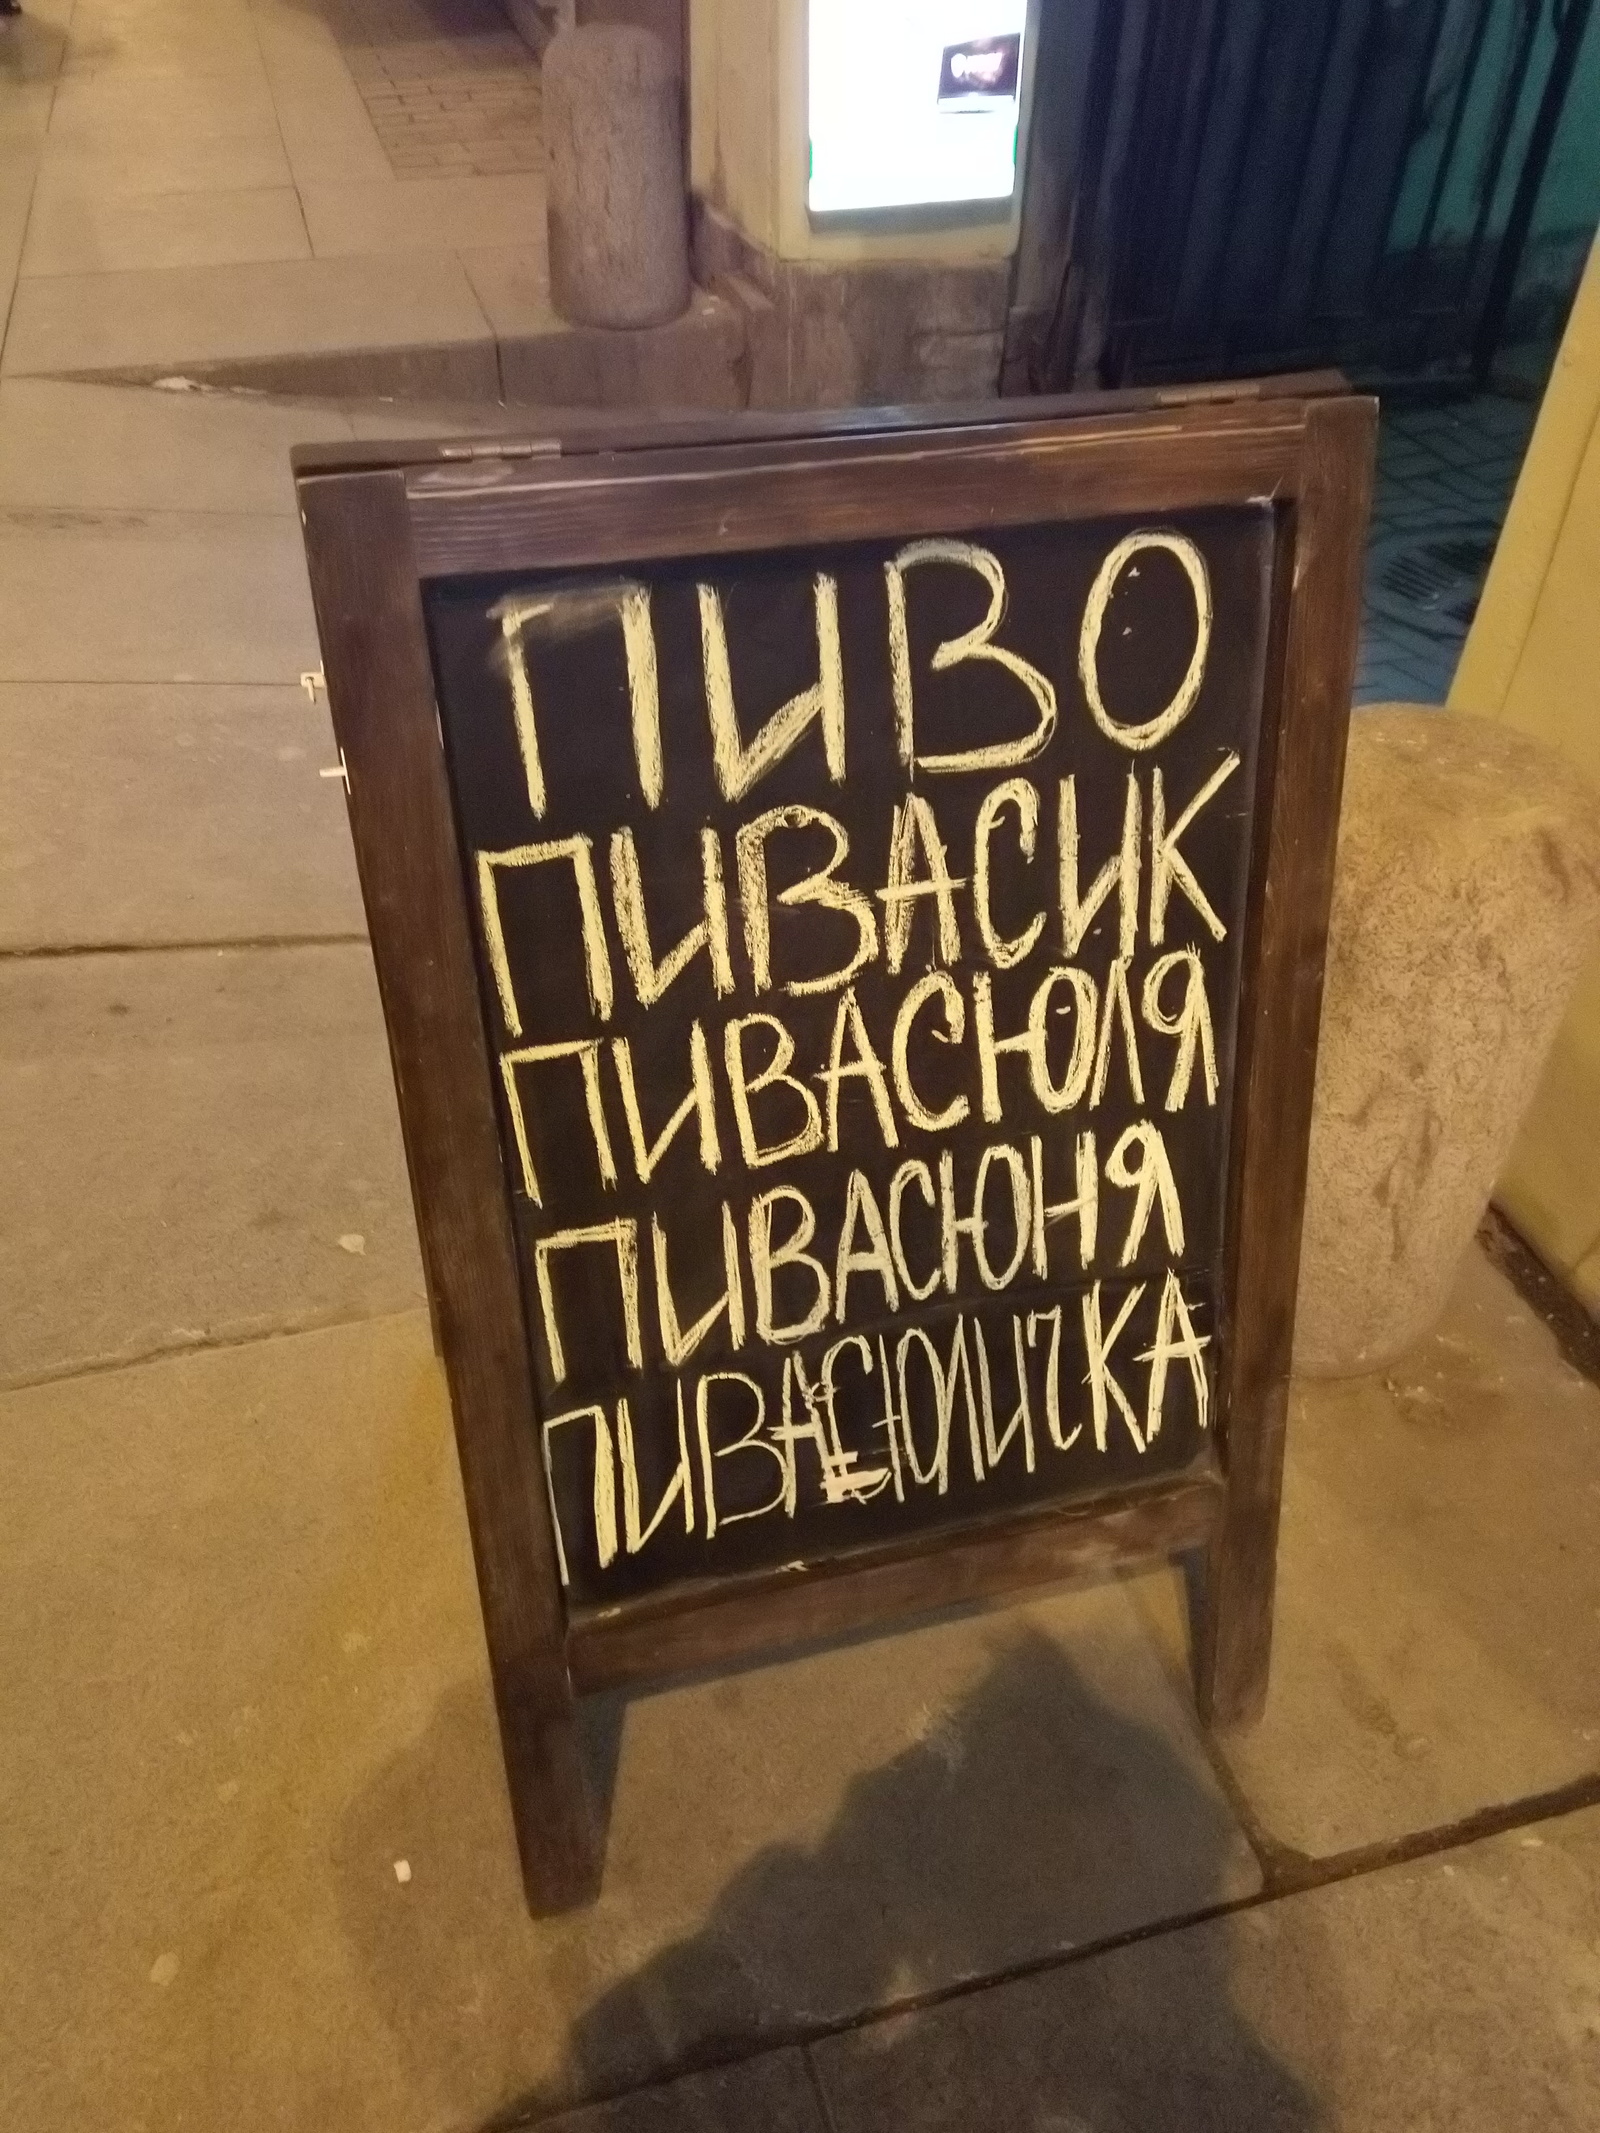 ПИВО
ПИВАСИК
ПИВАСЮЛЯ
ПИВАСЮНЯ
ПИВАСЮЛИЧКА